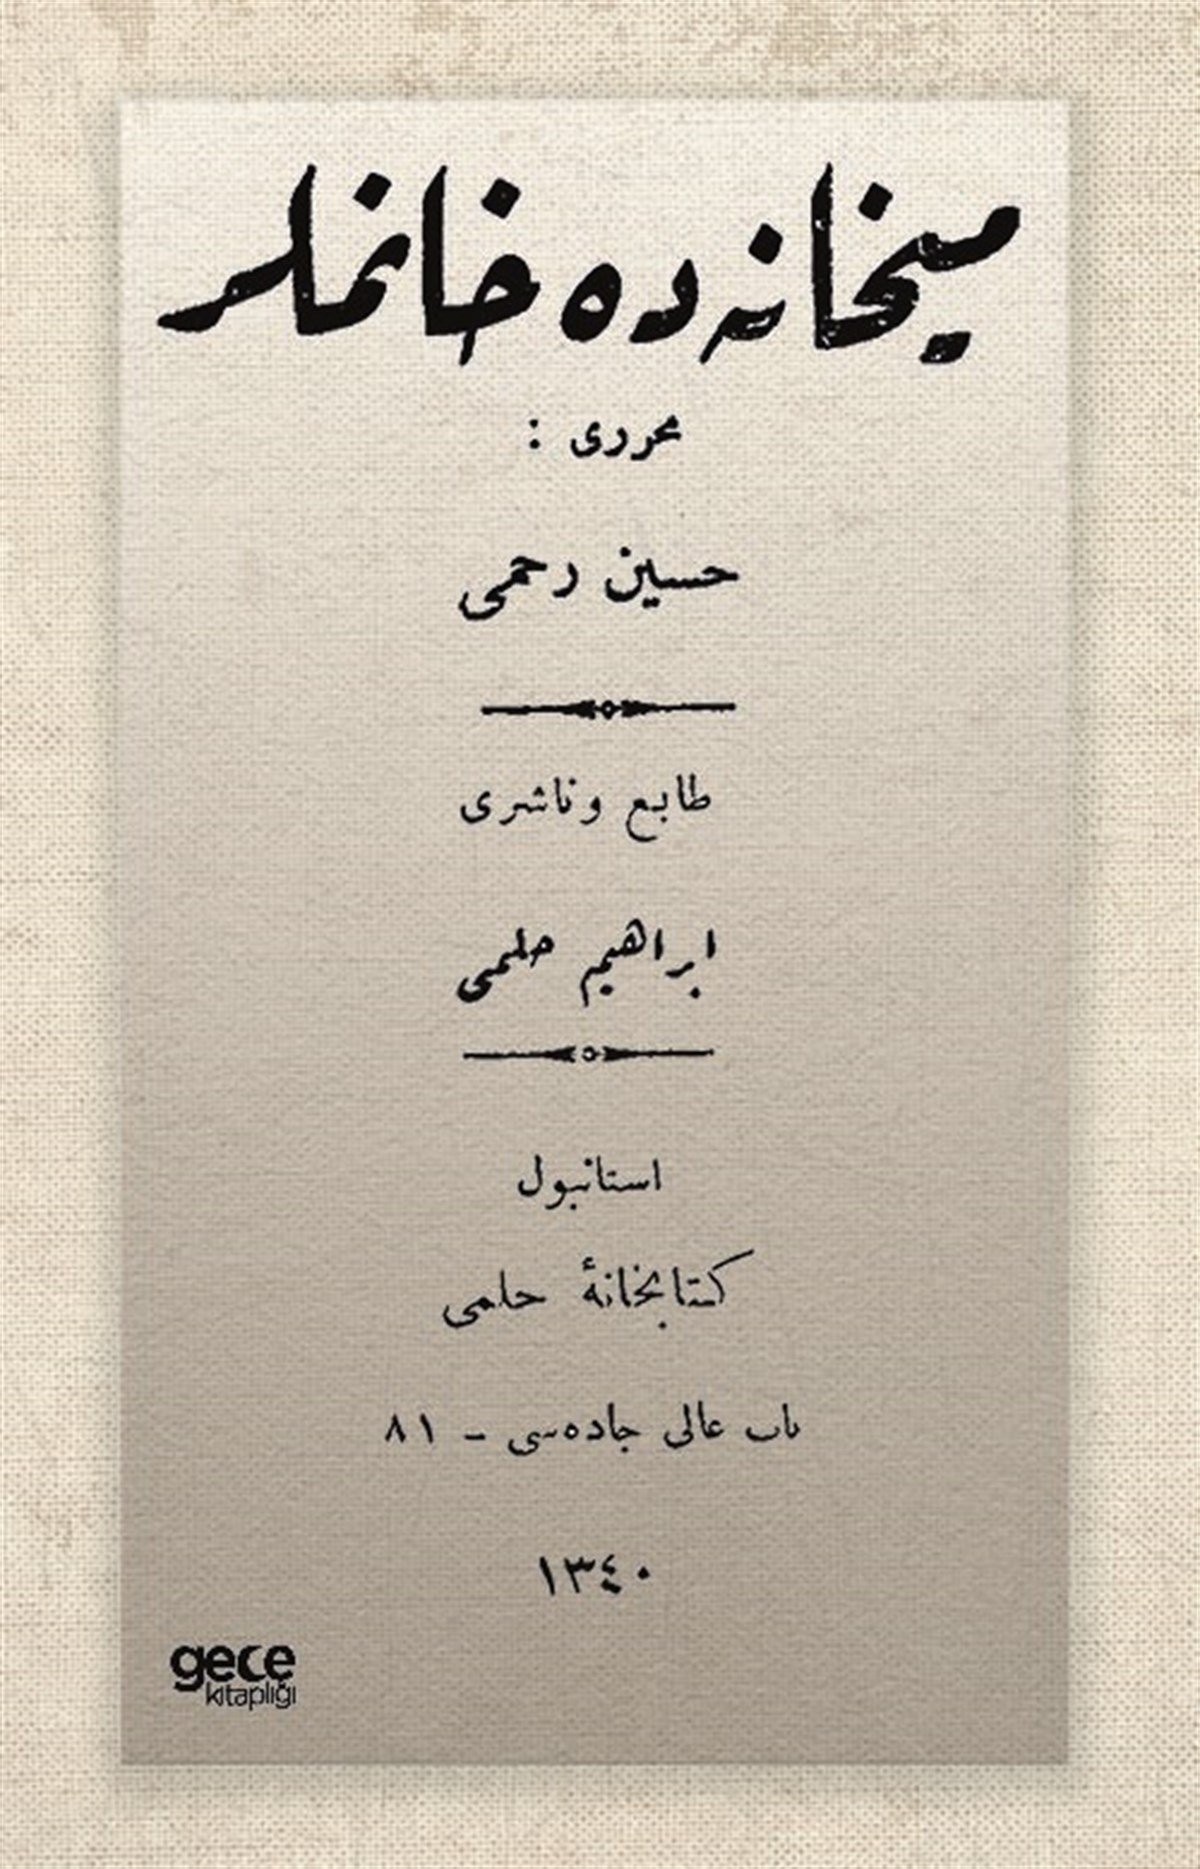 ميخانه ده خانملر
محررى :
حسين رحمى
طابع وناشرى
ابراهيم حلمى
استانبول
كتابخانهٔ حلمى
باب عالى جاده‌سى - ٨١
١٣٤٠
gece
kitaplığı